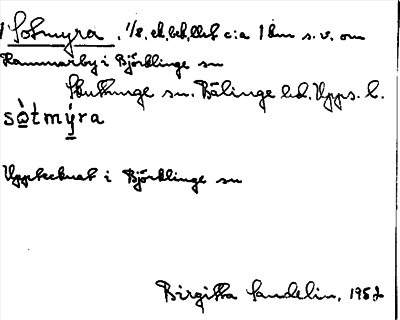 Sotmyra, 1/8, ek, bek, lht c:a 1 km s.v. om
Hammarby i Björklinge sn
Skuttunge sn. Bälinge hd. Upps. l.
sòtmýra
Upptecknat i Björklinge sn
Birgitta Sundelin, 1952